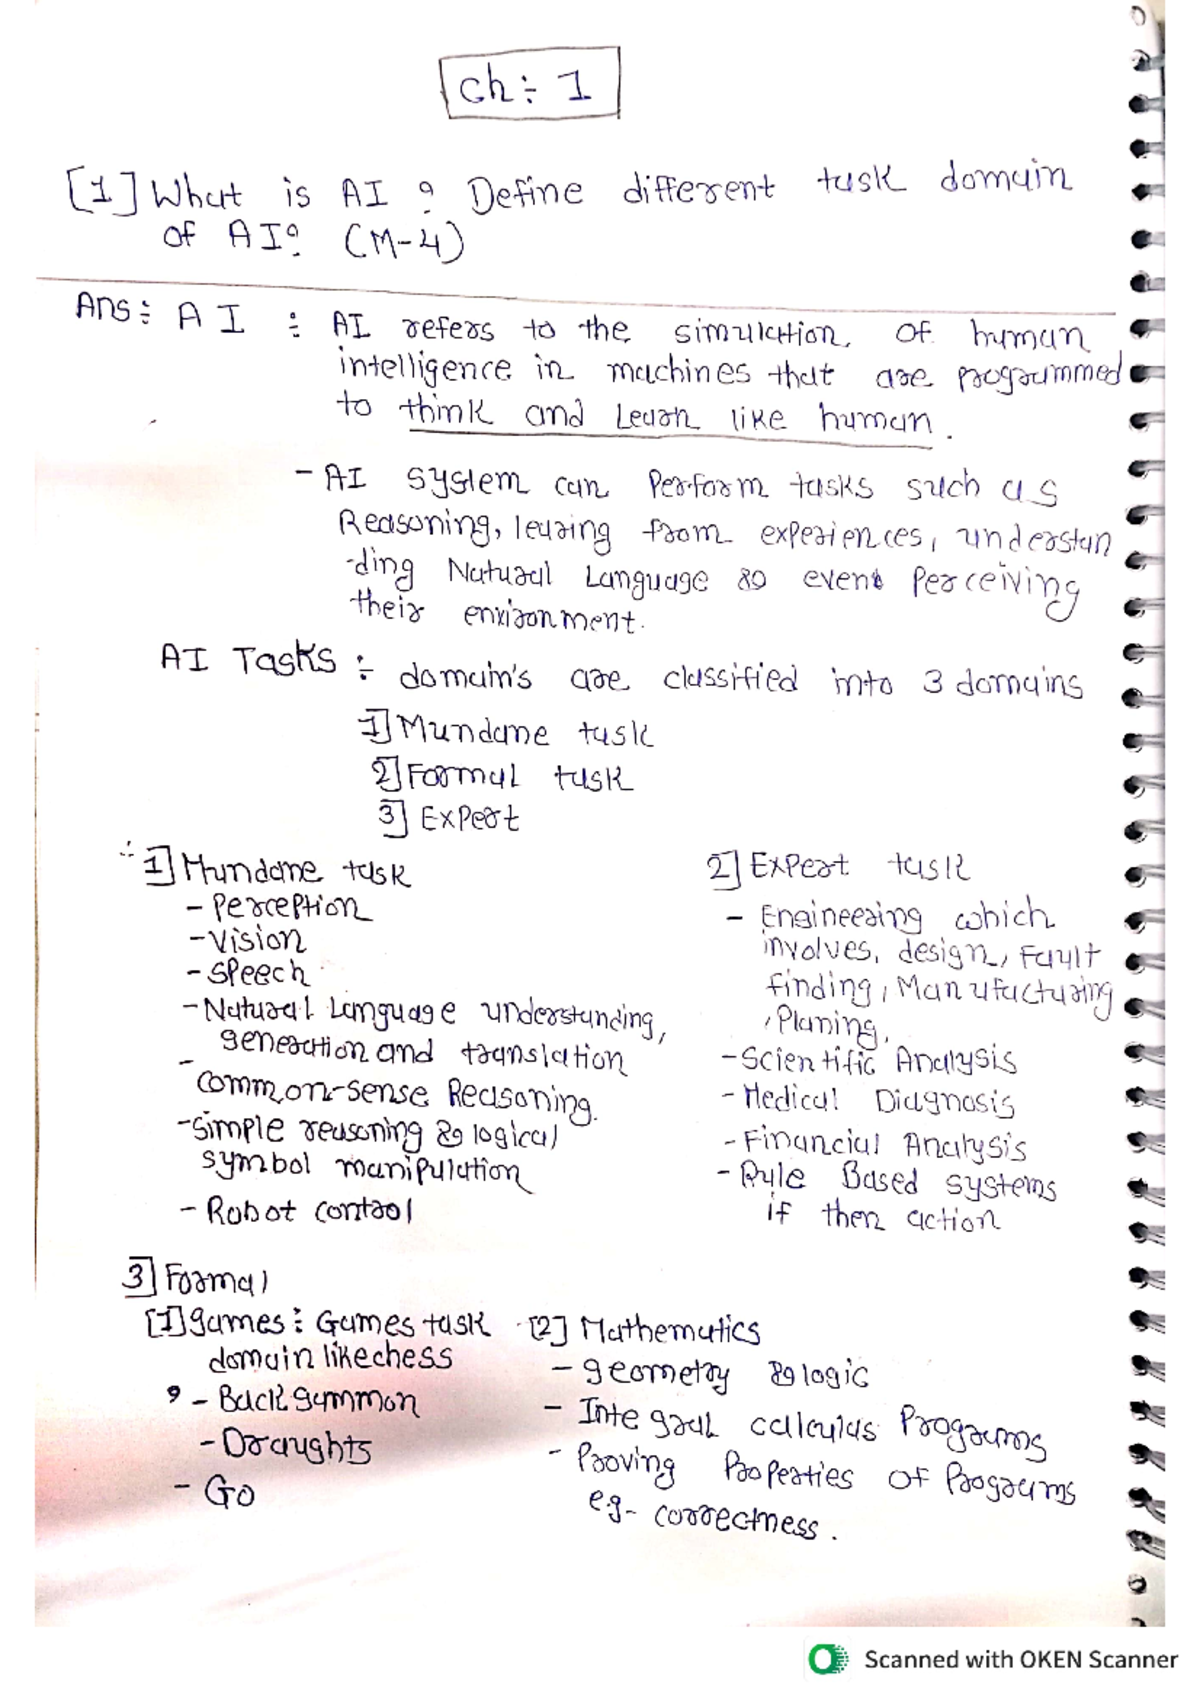 Ch ÷ 1
[1] What is AI ? Define different task domain
of AI? (M-4)
Ans : AI : AI refers to the simulation of human
intelligence in machines that are programmed
to think and Learn like human.
- AI system can Perform tasks such as
Reasoning, learing from experiences, understan
-ding Natural Language &9 event Perceiving
their environment.
AI Tasks ÷ domain's are classified into 3 domains
1] Mundane task
2] Formal task
3] Expert
÷ 1] Mundane task
- Perception
- Vision
- speech
- Natural Language understanding,
generation and translation
- common-sense Reasoning.
- simple reasoning &9 logical
symbol manipulation
- Robot control
2] Expert task
- Engineering which
involves, design, Fault
finding, Manufacturing
, Planing,
- Scientific Analysis
- Medical Diagnosis
- Financial Analysis
- Rule Based systems
if then action
3] Formal
[1] games : Games task
domain like chess
- Back gammon
- Draughts
- Go
[2] Mathematics
- geometry &9 logic
- Integral calculas Programs
- Proving Properties of Programs
e.g- correctness.
Scanned with OKEN Scanner